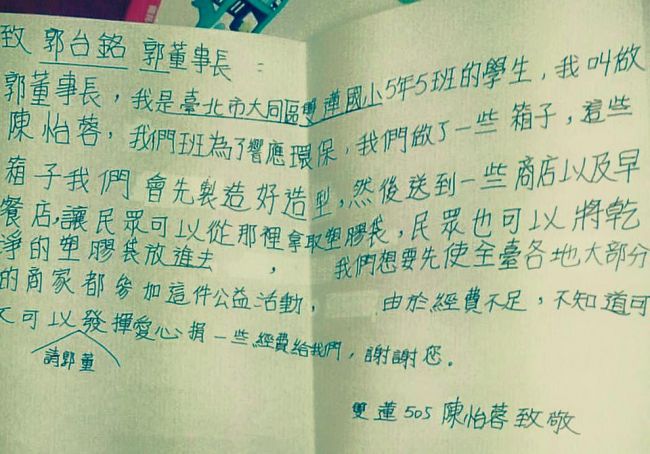 致 郭台銘 郭董事長：
郭董事長，我是臺北市大同區雙蓮國小5年5班的學生，我叫做
陳怡蓉，我們班為了響應環保，我們做了一些箱子，這些
箱子我們會先製造好造型，然後送到一些商店以及早
餐店，讓民眾可以從那裡拿取塑膠袋，民眾也可以將乾
淨的塑膠袋放進去，我們想要先使全臺各地大部分
的商家都參加這件公益活動，由於經費不足，不知道可
不可以發揮愛心捐一些經費給我們，謝謝您。
請郭董
雙蓮505 陳怡蓉致敬